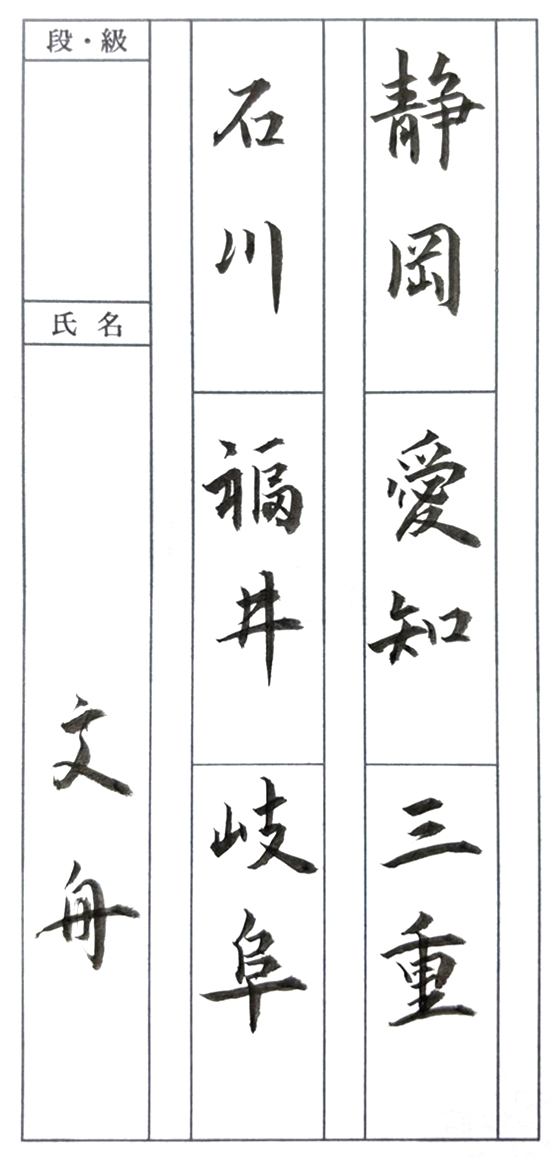 静岡
愛知
三重
石川
福井
岐阜
段・級
氏名
文舟